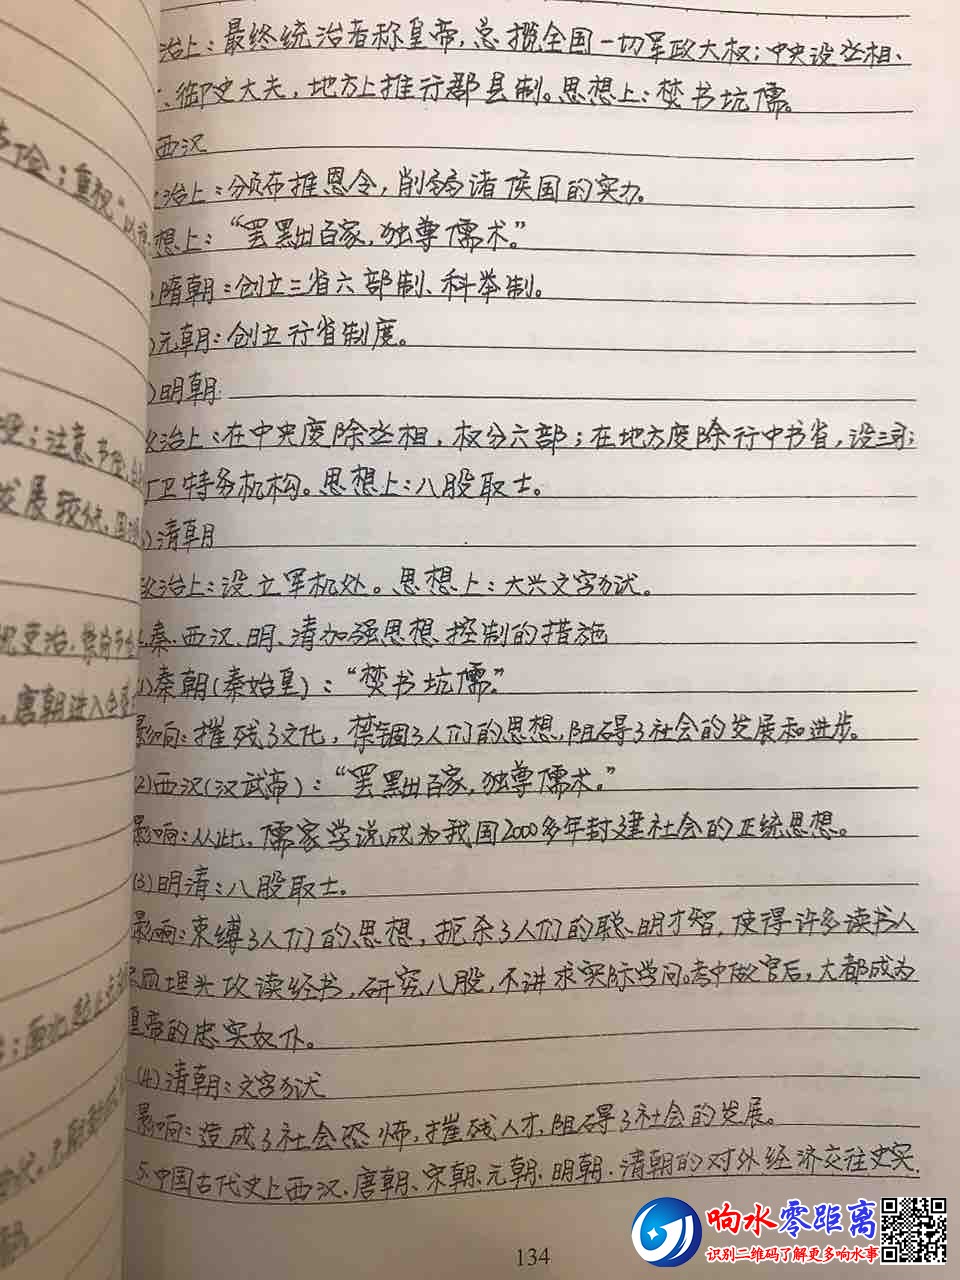 治上：最终统治者称皇帝，总揽全国一切军政大权；中央设丞相、
、御史大夫，地方上推行郡县制。思想上：焚书坑儒。
西汉
治上：颁布推恩令，削弱诸侯国的实力。
想上：“罢黜百家，独尊儒术。”
隋朝：创立三省六部制、科举制。
)元朝：创立行省制度。
)明朝：
政治上：在中央废除丞相，权分六部；在地方废除行中书省，设三司；
厂卫特务机构。思想上：八股取士。
)清朝
政治上：设立军机处。思想上：大兴文字狱。
秦、西汉、明、清加强思想控制的措施
(1)秦朝(秦始皇)：“焚书坑儒”
影响：摧残了文化，禁锢了人们的思想，阻碍了社会的发展和进步。
(2)西汉(汉武帝)：“罢黜百家，独尊儒术。”
影响：从此，儒家学说成为我国2000多年封建社会的正统思想。
(3)明清：八股取士。
影响：束缚了人们的思想，扼杀了人们的聪明才智，使得许多读书人
埋头攻读经书，研究八股，不讲求实际学问。考中做官后，大都成为
皇帝的忠实奴仆。
(4)清朝：文字狱
影响：造成了社会恐怖，摧残人才，阻碍了社会的发展。
5.中国古代史上西汉、唐朝、宋朝、元朝、明朝、清朝的对外经济交往史实
134
节俭；重视“以
注意节俭
发展较快、国
吏治，
唐朝进入全
响水零距离
识别二维码了解更多响水事